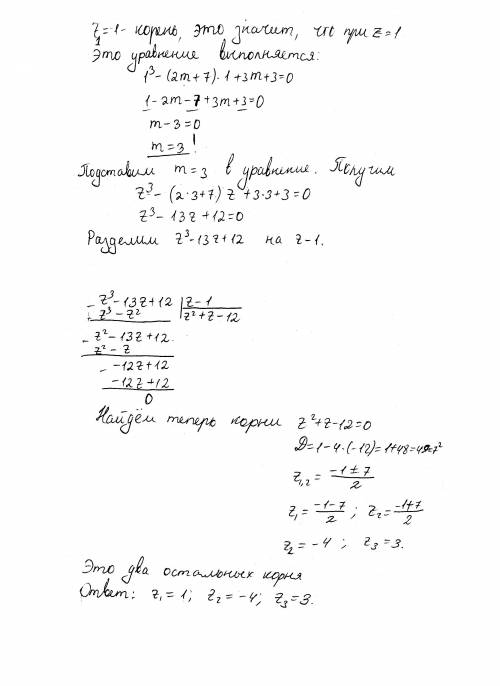 z₁=1- корень, это значит, что при z=1
Это уравнение выполняется:
1³-(2m+7)·1+3m+3=0
1-2m-7+3m+3=0
m-3=0
m=3!
Подставим m=3 в уравнение. Получим
z³-(2·3+7)z+3·3+3=0
z³-13z+12=0
Разделим z³-13z+12 на z-1.
z³-13z+12 | z-1
z³-z² z²+z-12
z²-13z+12
z²-z
-12z+12
-12z+12
0
Найдём теперь корни z²+z-12=0
D=1-4·(-12)=1+48=49=7²
z₁,₂=(-1±7)/2
z₁=(-1-7)/2; z₂=(-1+7)/2
z₂=-4; z₃=3.
Это два остальных корня
Ответ: z₁=1; z₂=-4; z₃=3.